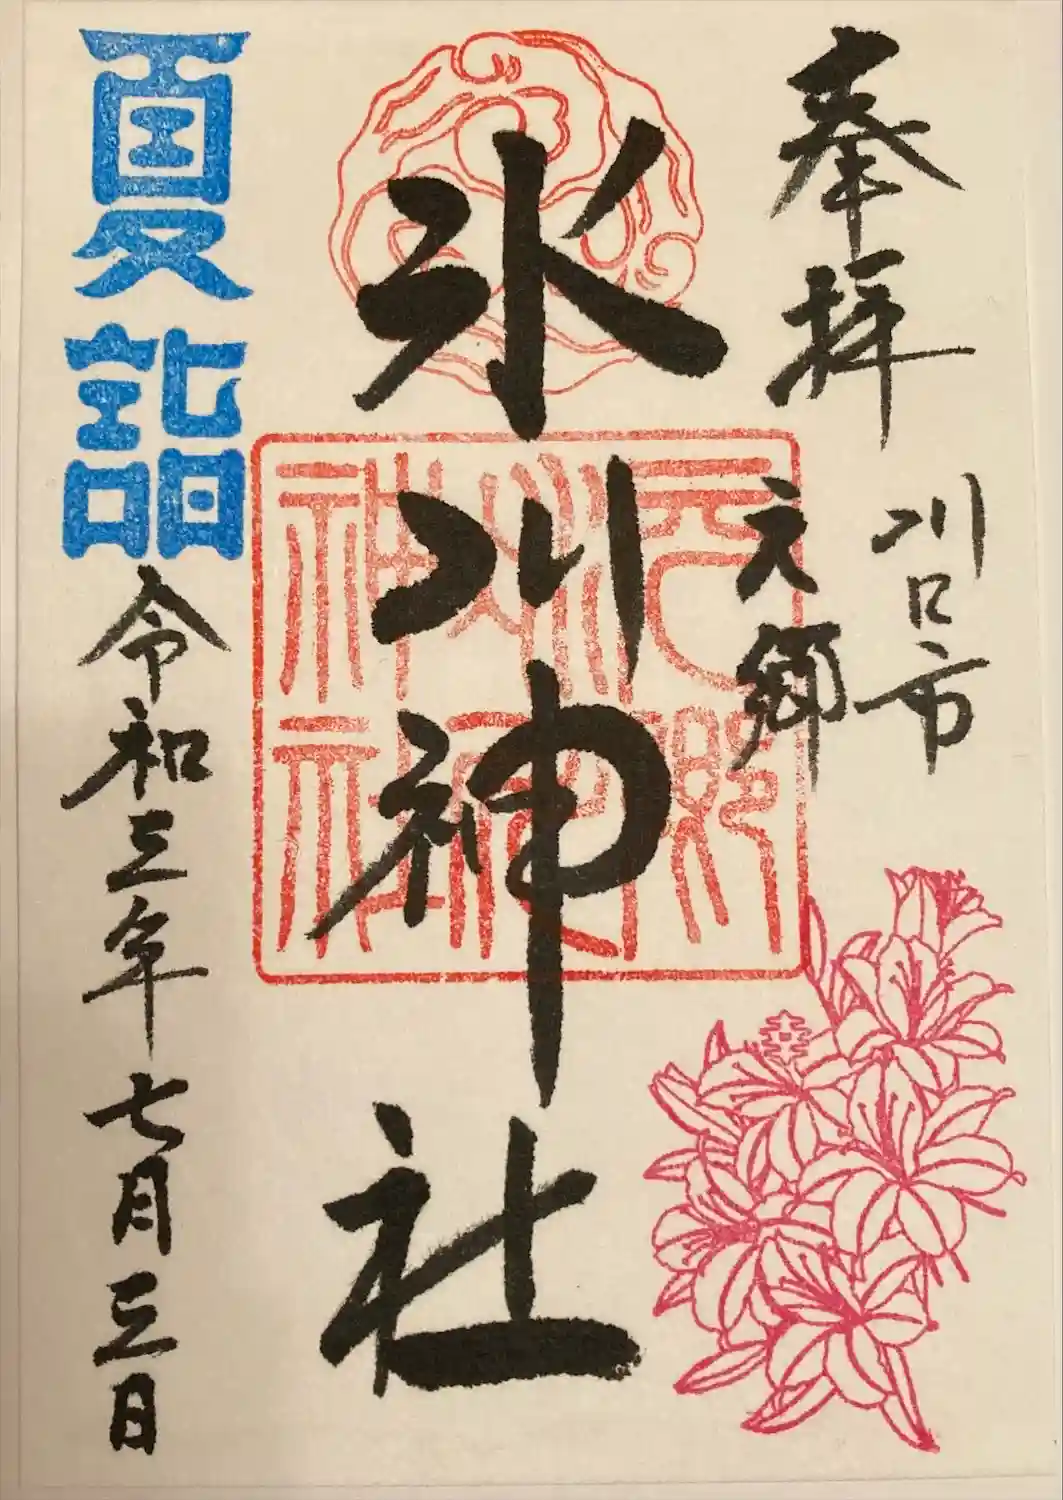 奉拝
川口市
元郷
氷川神社
元郷氷川神社
夏詣
令和三年七月三日
幸